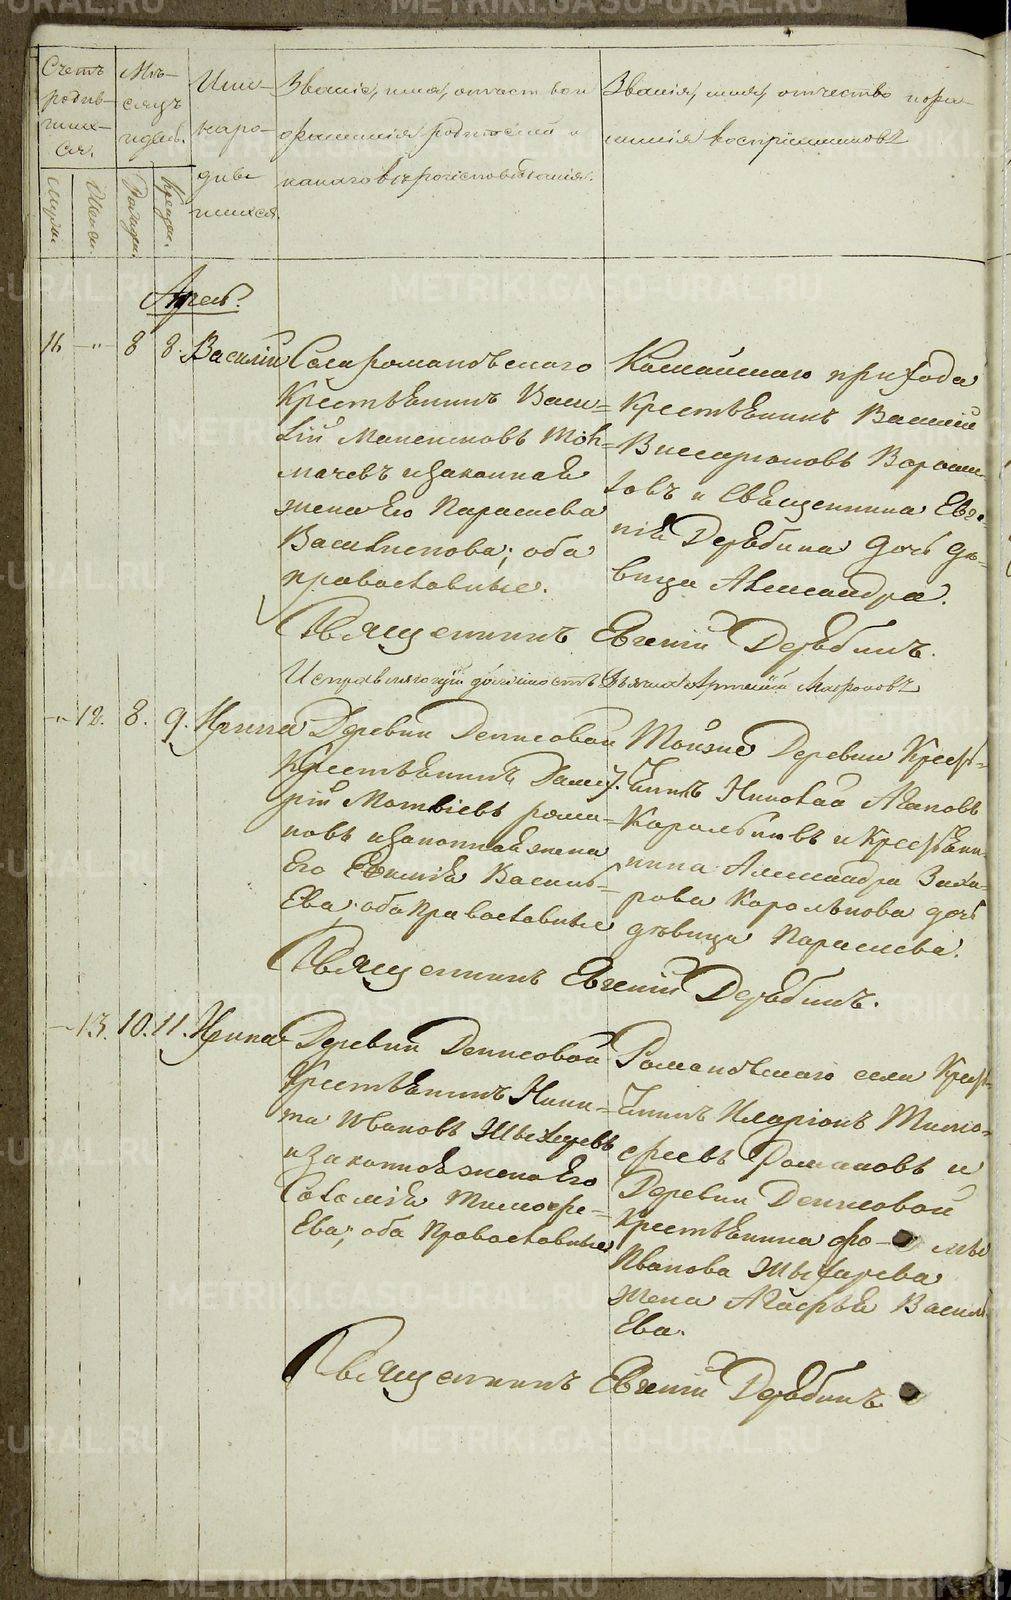 METRIKI.GASO-URAL.RU
Счетъ родив-шихся.
Мѣ-сяцъ и день.
Имя народившихся.
Званіе, имя, отчество и фамилія родителей и какаго вѣроисповѣданія.
Званія, имя, отчество и фамилія воспріемниковъ
Мужи.
Женск.
Рожден.
Крещен.
Апрель.
16 — " 8 8. Василій
Села романовскаго
Крестьянинъ Васи-
лій Максимовъ Тол-
мачевъ и законная
жена его Параскева
Васильевова; оба
православные.
прихода
Крестьянинъ Василій
Виссаріоновъ
и Священника Евге-
нія Дерябина дочь дѣ-
вица Александра.
Священникъ Евгеній Дерябинъ.
Исправляющій должность Дьячка
— " — 12. 8. 9. Ирина
Деревни Денисовой
Крестьянинъ
рій Матвѣевъ рома-
новъ и законная жена
Его Евдокія Василь-
Ева; оба Православные
Тойже Деревни Кресть-
янинъ Николай Агаповъ
Карольковъ и Крестьяни-
нина Александра Заха-
рова Каролькова дочь
дѣвица Параскева.
Священникъ Евгеній Дерябинъ.
— " — 13. 10. 11. Ирина
Деревни Денисовой
Крестьянинъ Ники-
та Ивановъ
и законная жена Его
Соломія Тимофе-
Ева; оба Православные
Романовскаго села Кресть-
янинъ Иларіонъ Тимо-
феевъ Романовъ и
Деревни Денисовой
Крестьянина Фо- мы
Иванова
жена Агафья Василь
Ева.
Священникъ Евгеній Дерябинъ.